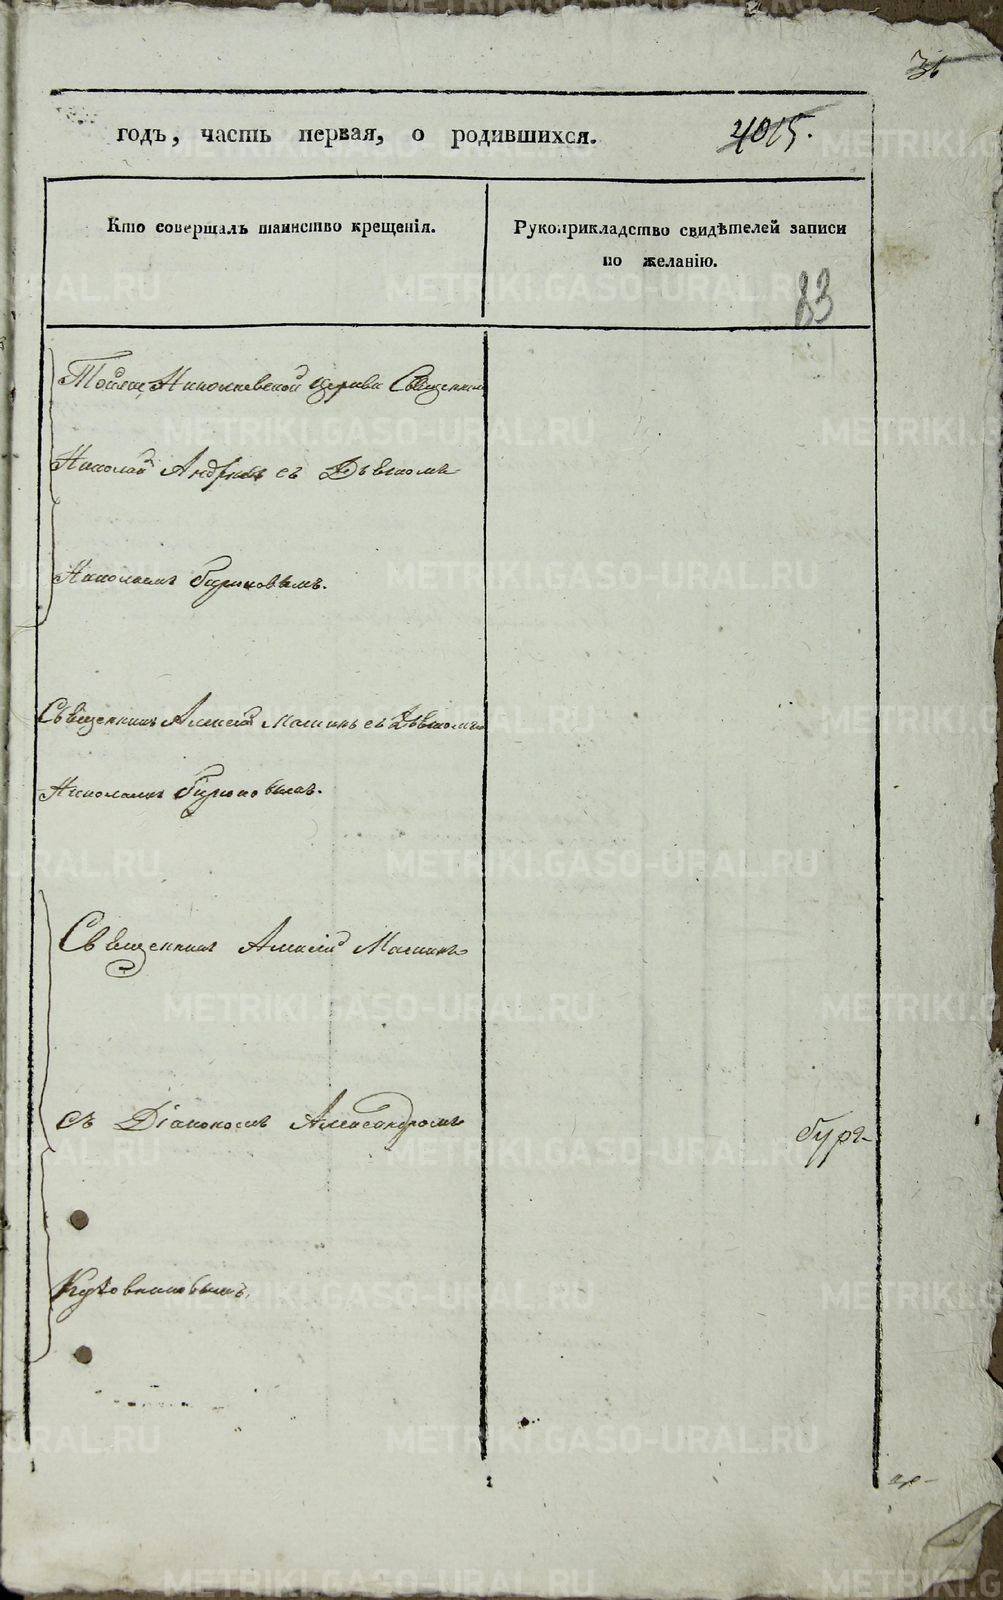 36
годъ, часть первая, о родившихся.
4015.
Кто совершалъ таинство крещенія.
Рукоприкладство свидѣтелей записи
по желанію.
83
Тойже Николаевской церкви Священникъ
Николай Андреевъ съ Дьячкомъ
Николаемъ Бирюковымъ.
Священникъ Алексей Малининъ съ Дьячкомъ
Николаемъ Бирюковымъ.
Священникъ Алексій
съ Діакономъ Александромъ
бург-
METRIKI.GASO-URAL.RU